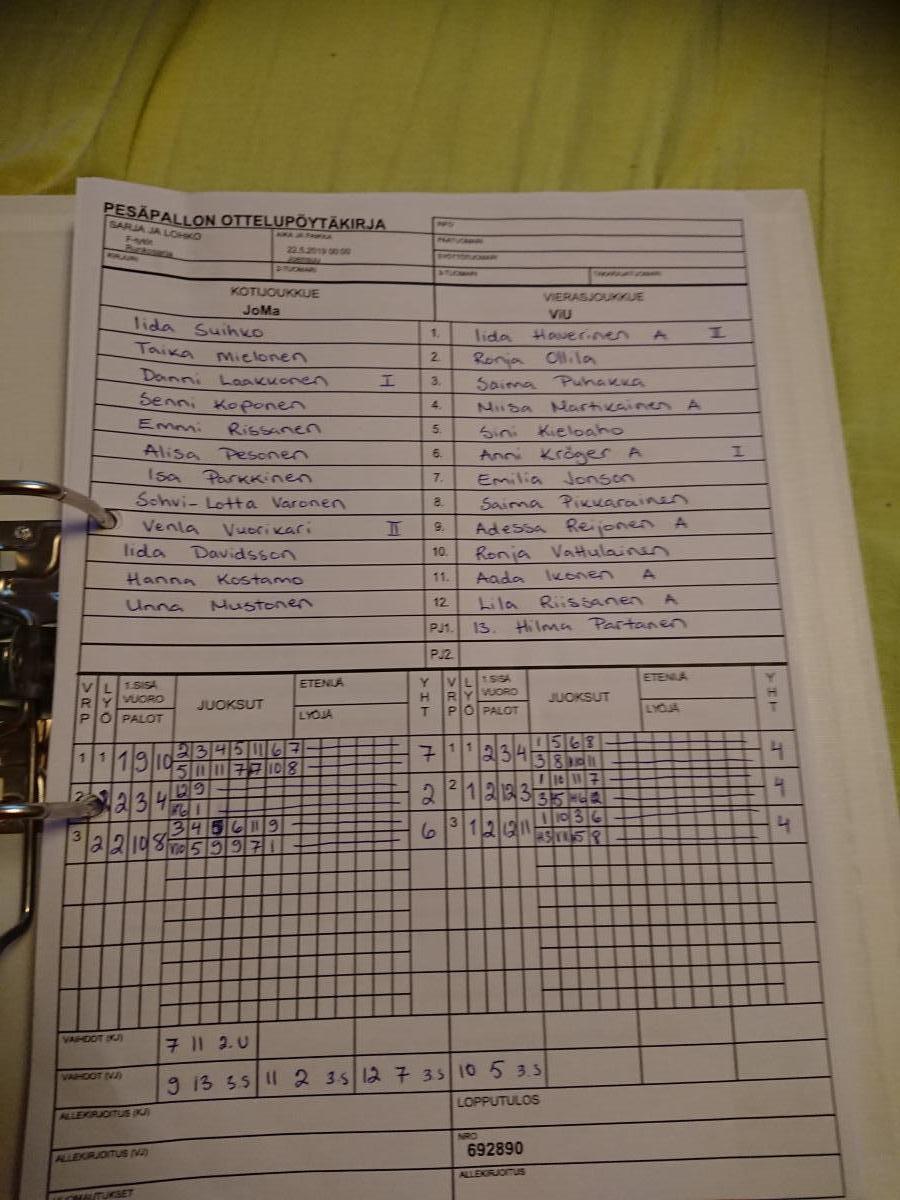 PESÄPALLON OTTELUPÖYTÄKIRJA
INFO
SARJA JA LOHKO
AIKA JA PAIKKA
F-tytöt
Runkosarja
22.5.2019 00:00
Joensuu
PÄÄTUOMARI
SYÖTTÖTUOMARI
KIRJURI
2-TUOMARI
3-TUOMARI
TAKARAJATUOMARI
KOTIJOUKKUE VIERASJOUKKUE
JoMa ViU
Iida Suihko 1. Iida Haverinen A II
Taika Mielonen 2. Ronja Ollila
Danni Laakkonen I 3. Saima Puhakka
Senni Koponen 4. Miisa Martikainen A
Emmi Rissanen 5. Sini Kieloaho
Alisa Pesonen 6. Anni Kröger A I
Isa Parkkinen 7. Emilia Jonson
Sohvi-Lotta Varonen 8. Saima Pikkarainen
Venla Vuorikari II 9. Adessa Reijonen A
Iida Davidsson 10. Ronja Vattulainen
Hanna Kostamo 11. Aada Ikonen A
Unna Mustonen 12. Lila Riissanen A
PJ1. 13. Hilma Partanen
PJ2.
VRP LYÖ 1.SISÄ VUORO PALOT JUOKSUT ETENIJÄ LYÖJÄ YHT VRP LYÖ 1.SISÄ VUORO PALOT JUOKSUT ETENIJÄ LYÖJÄ YHT
1 1 1 9 10 2 3 4 5 11 6 7 7 1 1 2 3 4 1 5 6 8 4
5 11 11 7 7 10 8 3 8 11
2 2 3 4 12 9 2 2 1 2 12 3 1 10 11 7 4
1
3 2 2 10 8 3 4 5 6 11 9 6 3 1 2 12 11 1 10 3 6 4
5 9 9 7 1 5 8
VAIHDOT (KJ) 7 11 2.U
VAIHDOT (VJ) 9 13 3.S 11 2 3.S 12 7 3.S 10 5 3.S
ALLEKIRJOITUS (KJ) LOPPUTULOS
ALLEKIRJOITUS (VJ) NRO
692890
ALLEKIRJOITUS
HUOMAUTUKSET